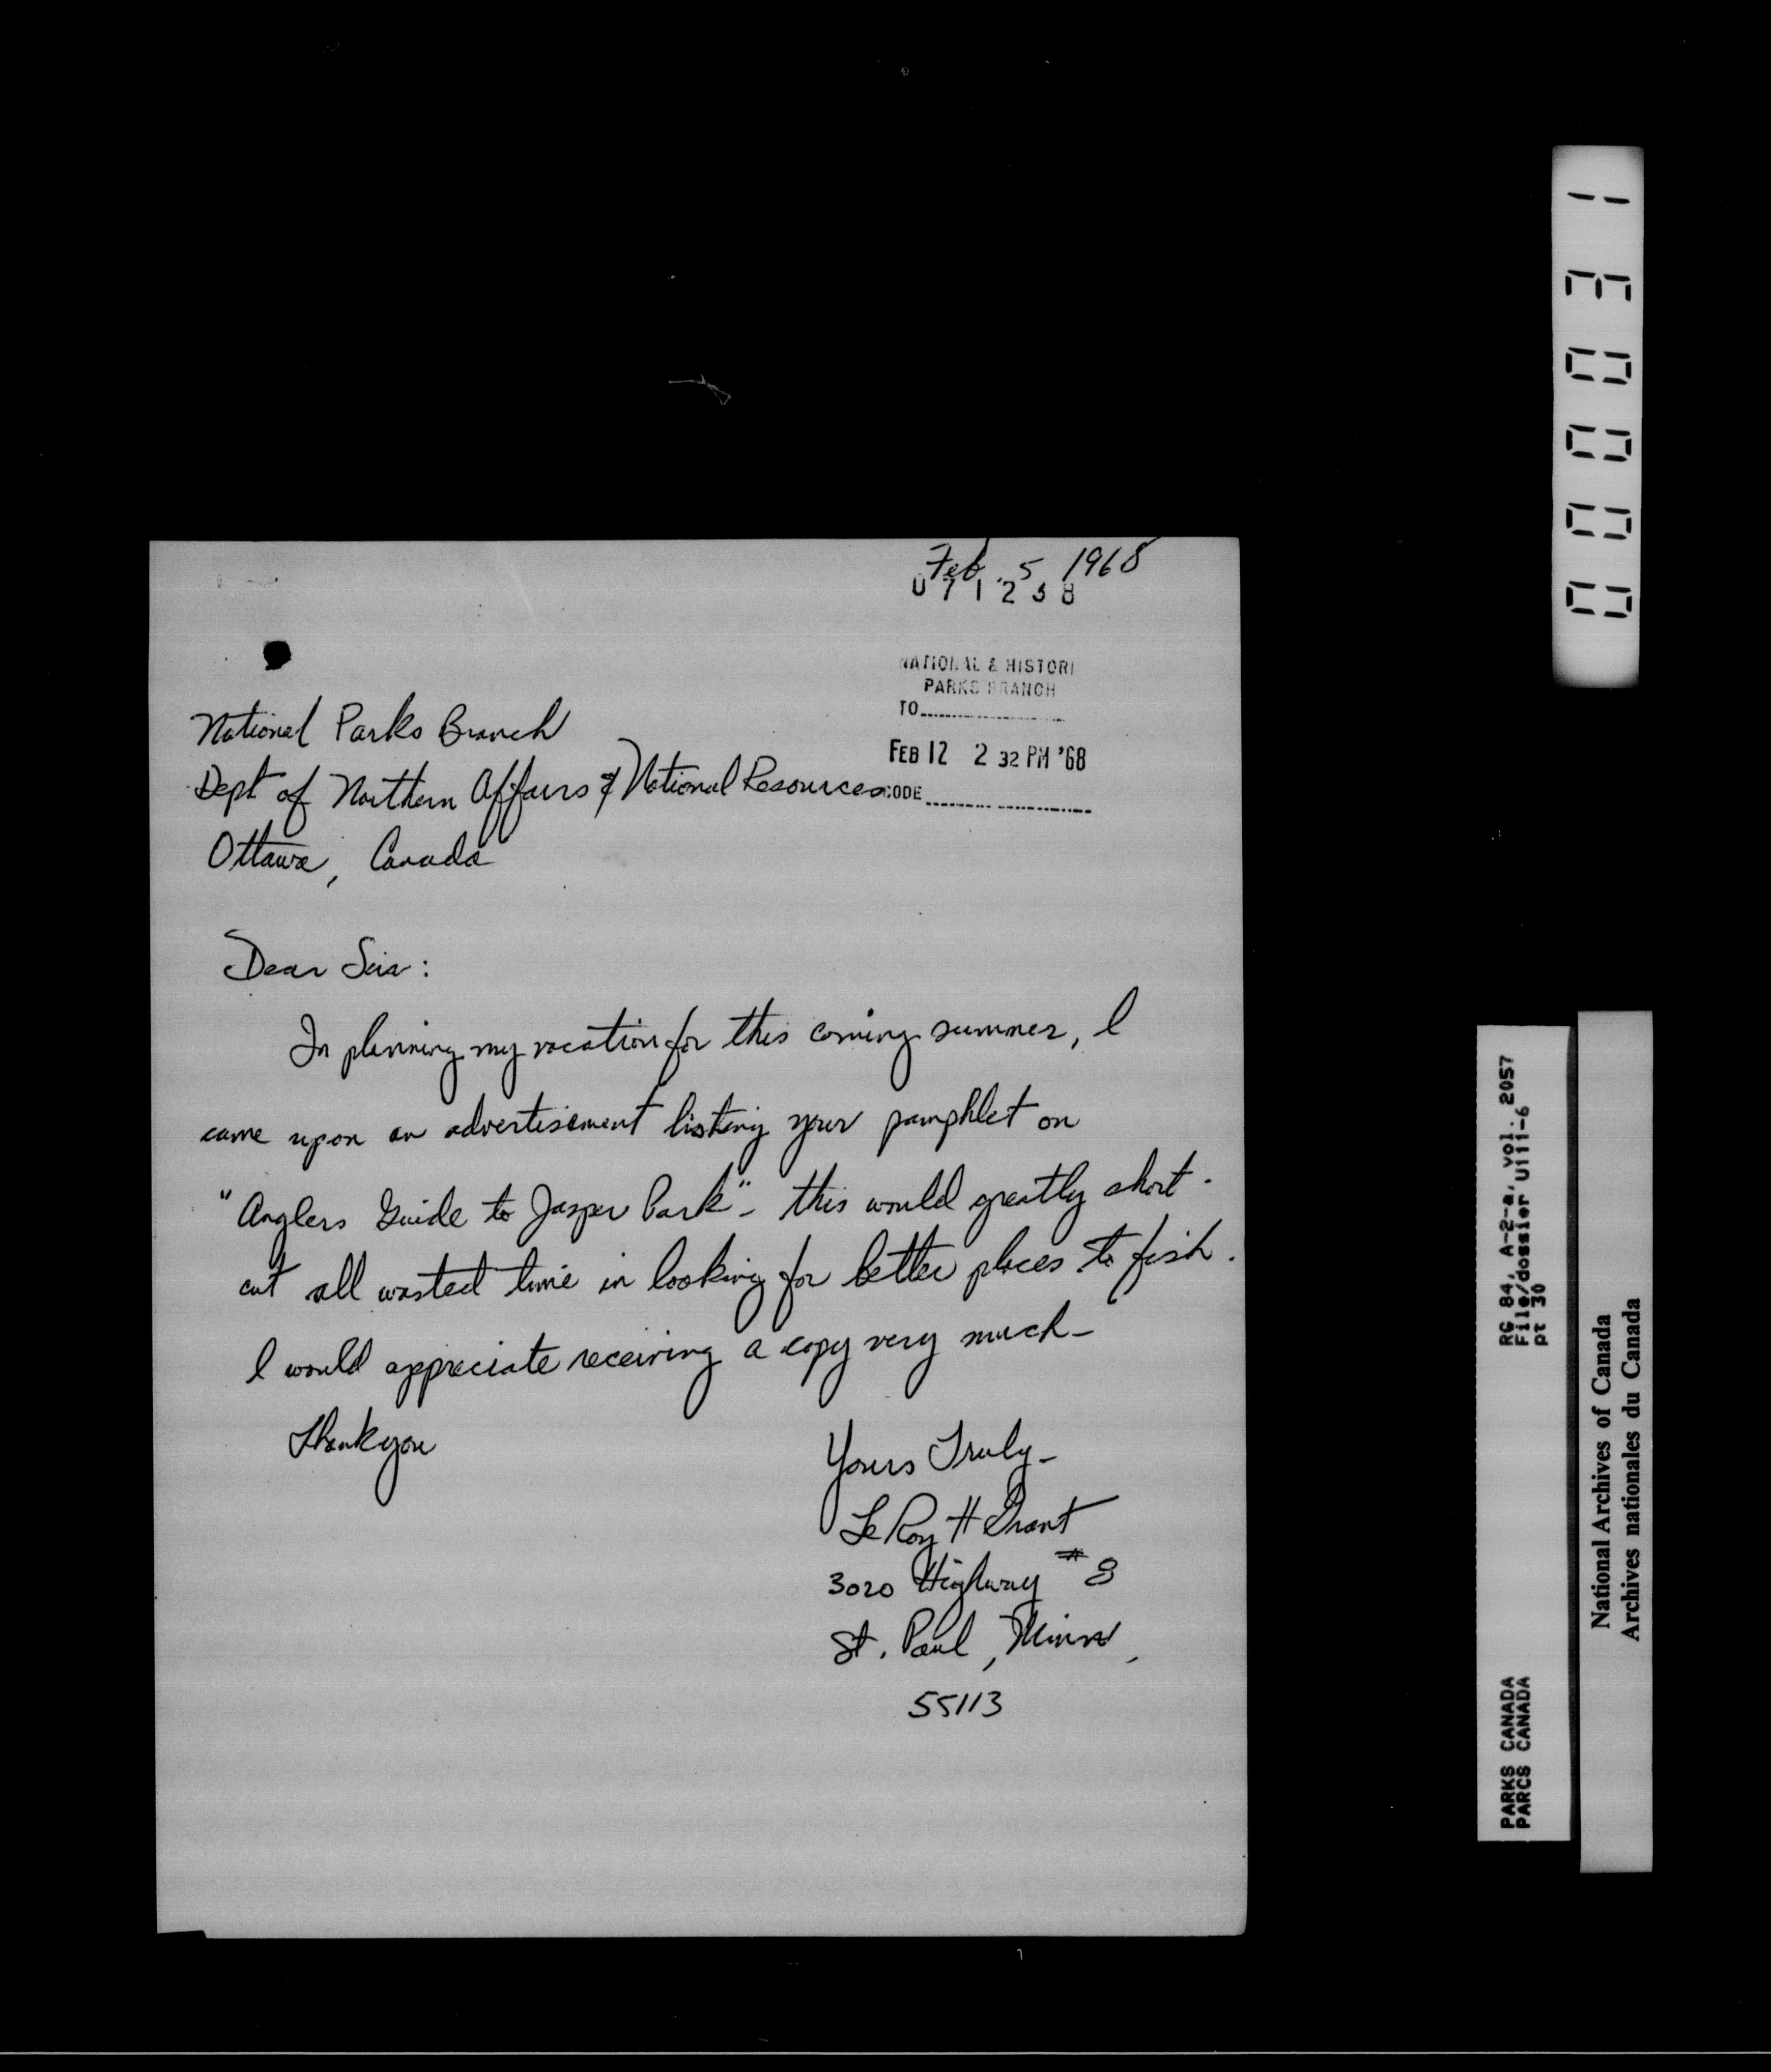 Feb. 5 1968
071238
NATIONAL & HISTORI
PARKS BRANCH
TO
FEB 12 2 32 PM '68
CODE
National Parks Branch
Dept of Northern Affairs & National Resources
Ottawa, Canada
Dear Sir:
In planning my vacation for this coming summer, I
came upon an advertisement listing your pamphlet on
"Anglers Guide to Jasper Park" - this would greatly short-
cut all wasted time in looking for better places to fish.
I would appreciate receiving a copy very much -
Thank you
Yours Truly -
LeRoy H Grant
3020 Highway #8
St. Paul, Minn,
55113
PARKS CANADA
PARCS CANADA
RG 84, A-2-a, vol. 2057
File/dossier U111-6
pt 30
National Archives of Canada
Archives nationales du Canada